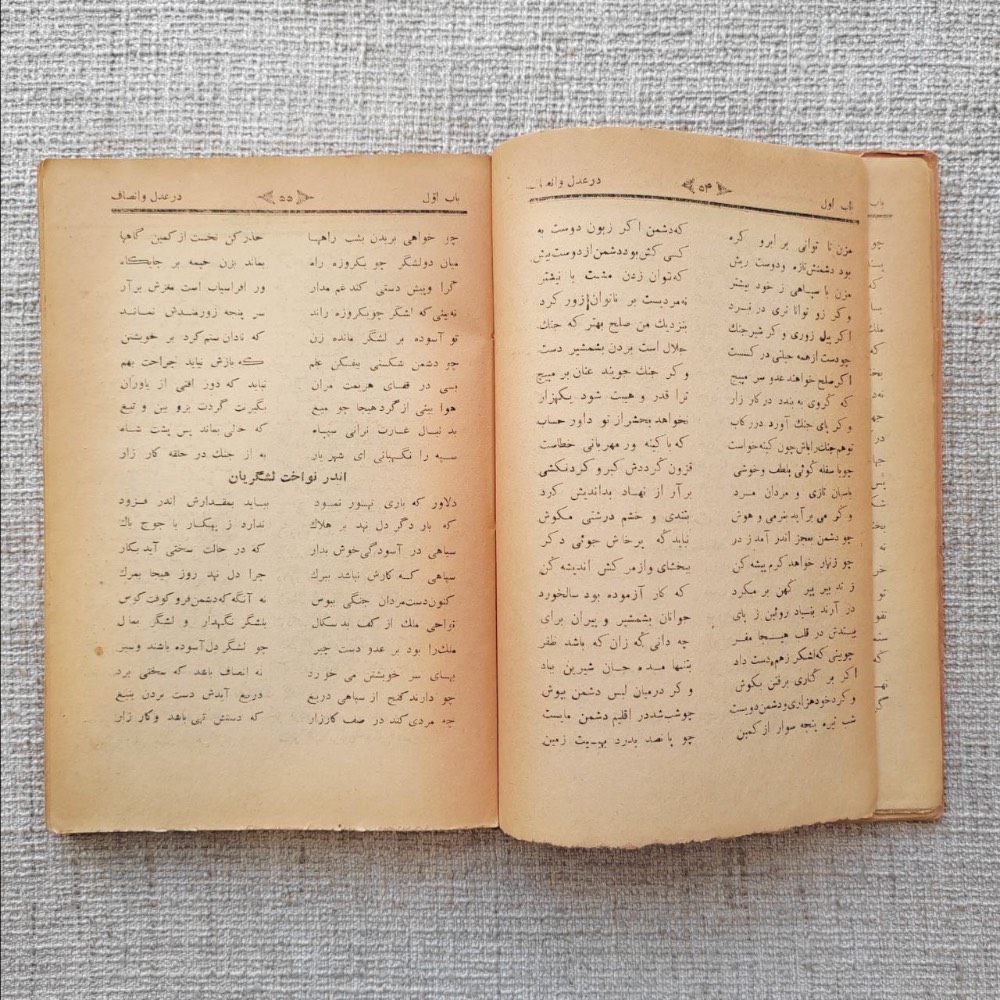 باب اول ۵۴ در عدل و انصاف
مزن تا توانی بر ابرو کره که دشمن اکر زبون دوست به
بود دشمنش تازه ودوست ریش کسی کش بود دشمن از دوست بیش
مزن با سپاهی ز خود بیشتر که نتوان زدن مشت با نیشتر
و کر زو توانا تری در نبرد نه مردست بر ناتوان زور کرد
اکر پیل زوری و کر شیر جنك بنزدیك من صلح بهتر که جنك
چو دست از همه حیلتی در کسست حلال است بردن بشمشیر دست
اکر صلح خواهند عدو سر مپیچ و کر جنك جویند عنان بر مپیچ
که گروی به بندد در کار زار ترا قدر و هیبت شود یکهزار
و کر پای جنك آورد در رکاب نخواهد بحشر از تو داور حساب
تو هم جنك را باش چون کینه خواست که با کینه ور مهربانی خطاست
چو با سفله گوئی بلطف و خوشی فزون گرددش کبر و گردنکشی
باسبان تازی و مردان مرد بر آر از نهاد بداندیش کرد
و گر می بر آید بنرمی و هوش بتندی و خشم درشتی مکوش
چو دشمن بعجز اندر آمد ز در نباید که پرخاش جوئی دکر
چو زنهار خواهد کرم پیشه کن ببخشای وازمر کش اندیشه کن
ز تدبیر پیر کهن بر مکرد که کار آزموده بود سالخورد
در آرند بنیاد روئین ز پای جوانان بشمشیر و پیران برای
بیندیش در قلب هیجا مفر چه دانی که زان که باشد ظفر
چوبینی که لشکر زهم دست داد بتنها مده جان شیرین بباد
اکر بر کناری برفتن بکوش و کر درمیان لبس دشمن بپوش
و کرخود هزاری ودشمن دویست چوشب شد در اقلیم دشمن مایست
شب تیره پنجه سوار از کمین چو پانصد بدرد بهیبت زمین
باب اول ۵۵ در عدل و انصاف
چو خواهی بریدن بشب راهها حذر کن نخست از کمین گاهها
میان دولشگر چو یکروزه راه بماند بزن خیمه بر جایکاه
گرا وپیش دستی کند غم مدار ور افراسیاب است مغزش برآر
نه بینی که لشکر چویکروزه راند سر پنجه زورمندش نماند
تو آسوده بر لشگر مانده زن که نادان ستم کرد بر خویشتن
چو دشمن شکستی بیفکن علم که بازش نیاید جراحت بهم
بسی در قفای هزیمت مران نباید که دور افتی از یاوران
هوا بینی از گرد هیجا چو میغ بگیرت گردت بزو بین و تیغ
بد نبال غارت نرانی سپاه که خالی بماند پس پشت شاه
سپه را نگهبانی ای شهریار به از جنك در حلقه کار زار
اندر نواخت لشگریان
دلاور که باری تهور نمود بباید بمقدارش اندر فزود
که بار دگر دل نهد بر هلاك ندارد ز پیکار یا جوج باك
سپاهی در آسودگی خوش بدار که در حالت سختی آید بکار
سپاهی که کارش نباشد ببرك چرا دل نهد روز هیجا بمرك
کنون دست مردان جنگی ببوس نه آنگه که دشمن فرو کوفت کوس
نواحی ملك از کف بد سکال بلشگر نگهدار و لشگر بمال
ملك را بود بر عدو دست چیر چو لشگر دل آسوده باشند وسیر
بهای سر خویشتن می خورد نه انصاف باشد که سختی برد
چو دارند گنج از سپاهی دریغ دریغ آیدش دست بردن بتیغ
چه مردی کند در صف کارزار که دستش تهی باشد وکار زار